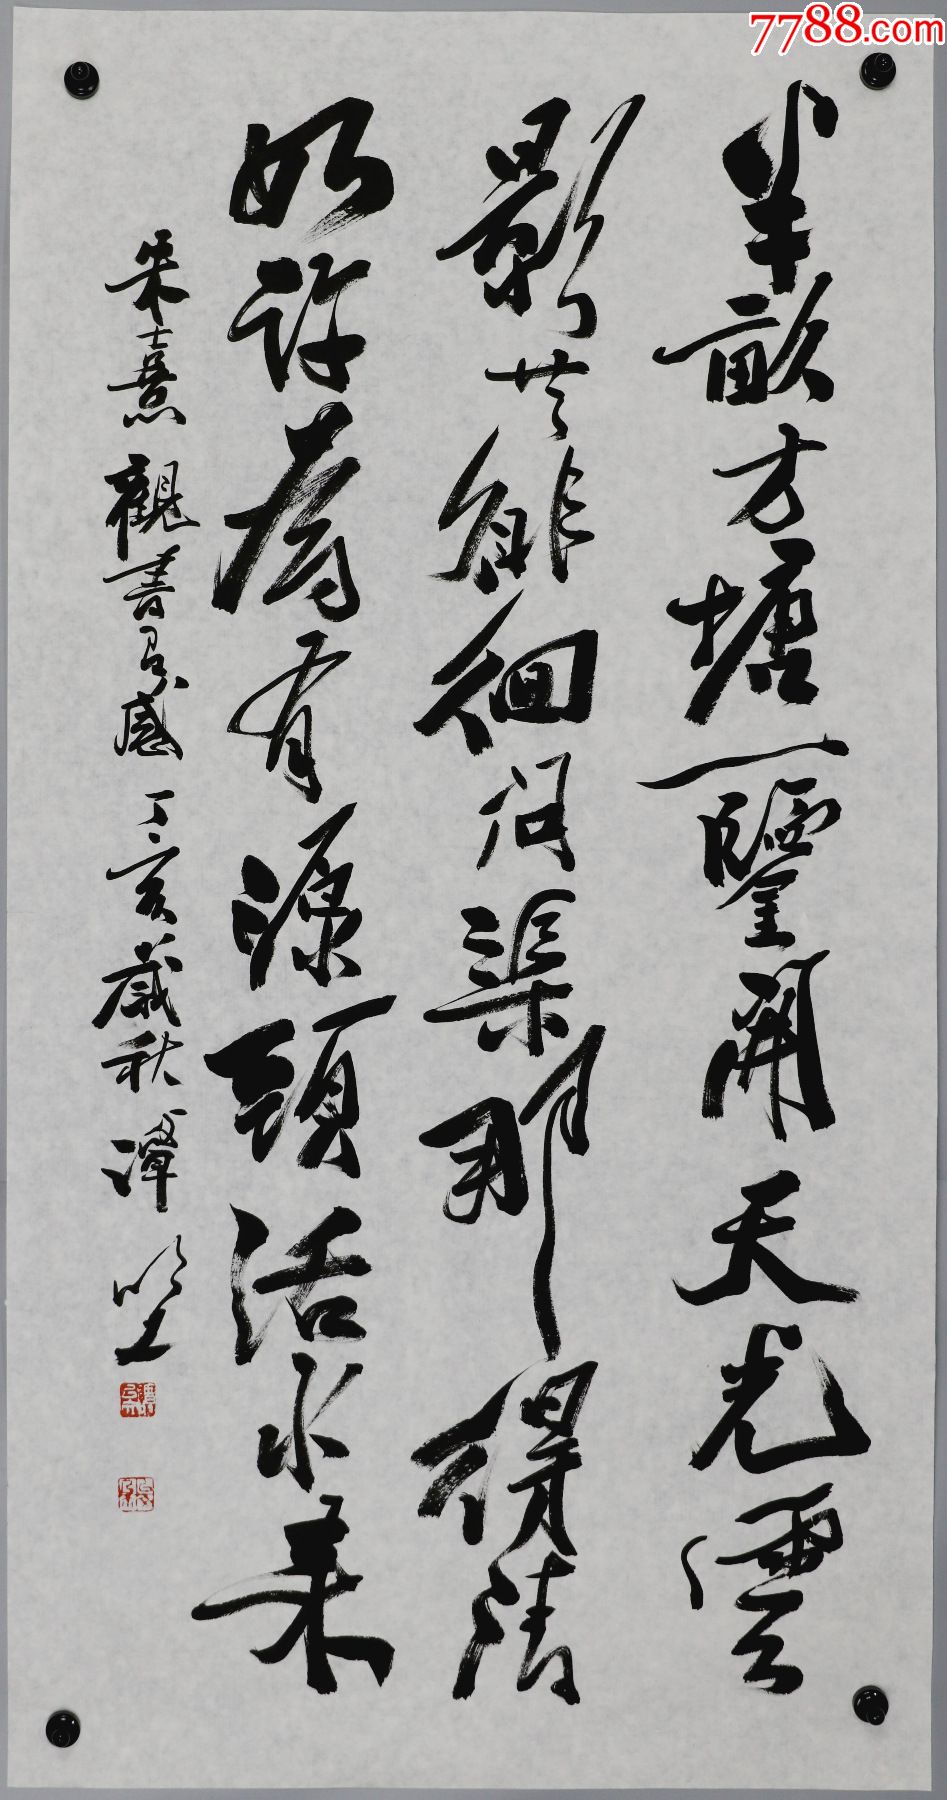 半畝方塘一鑒開天光雲
影共徘徊問渠那得清
如許爲有源頭活水来
朱熹觀書有感丁亥歲秋潭
7788.com